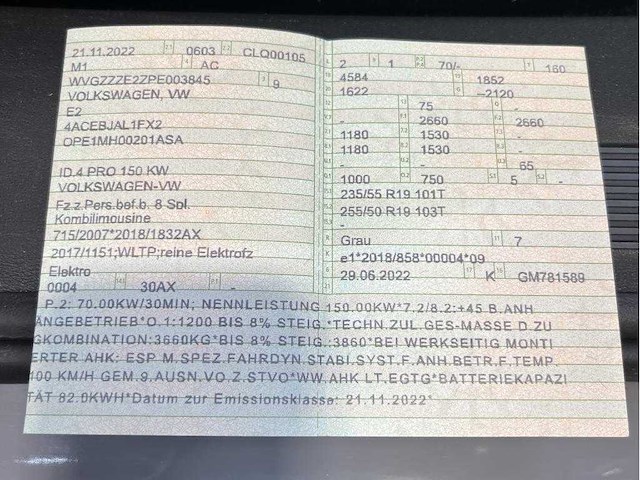 21.11.2022 0603 CLQ00105
M1 AC
WVGZZZE2ZPE003845 9
VOLKSWAGEN, VW
E2
4ACEBJAL1FX2
OPE1MH00201ASA
ID.4 PRO 150 KW
VOLKSWAGEN-VW
Fz.z.Pers.bef.b. 8 Spl.
Kombilimousine
715/2007*2018/1832AX
2017/1151;WLTP;reine Elektrofz
Elektro
0004 30AX -
2 1 70/- 160
4584 1852
1622 --2120
- 75 -
- 2660 2660
1180 1530 -
1180 1530 -
- - 65
1000 750 5 -
235/55 R19 101T
255/50 R19 103T
-
Grau 7
e1*2018/858*00004*09
29.06.2022 K GM781589
P.2: 70.00KW/30MIN; NENNLEISTUNG 150.00KW*7.2/8.2:+45 B.ANH
ÄNGEBETRIEB*O.1:1200 BIS 8% STEIG.*TECHN.ZUL.GES-MASSE D.ZU
GKOMBINATION:3660KG*BIS 8% STEIG.:3860*BEI WERKSEITIG MONTI
ERTER AHK: ESP M.SPEZ.FAHRDYN.STABI.SYST.F.ANH.BETR.F.TEMP.
100 KM/H GEM.9.AUSN.VO.Z.STVO*WW.AHK LT.EGTG*BATTERIEKAPAZI
TÄT 82.0KWH*Datum zur Emissionsklasse: 21.11.2022*